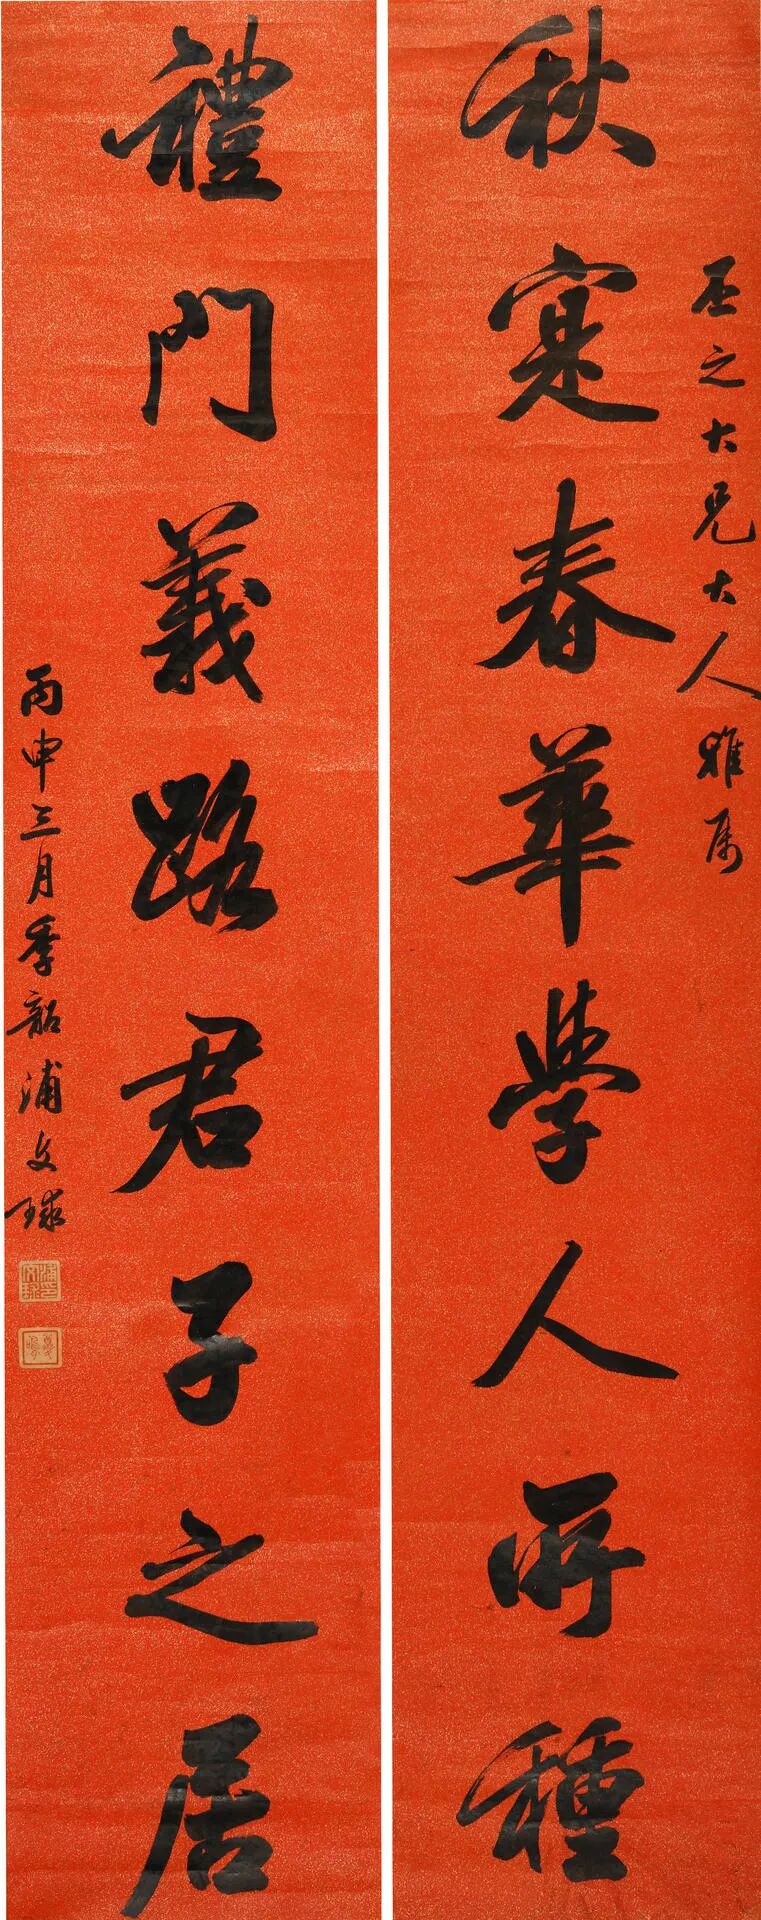 丕之大兄大人雅属
秋寔春華學人所種
禮門義路君子之居
丙申三月季韶浦文球